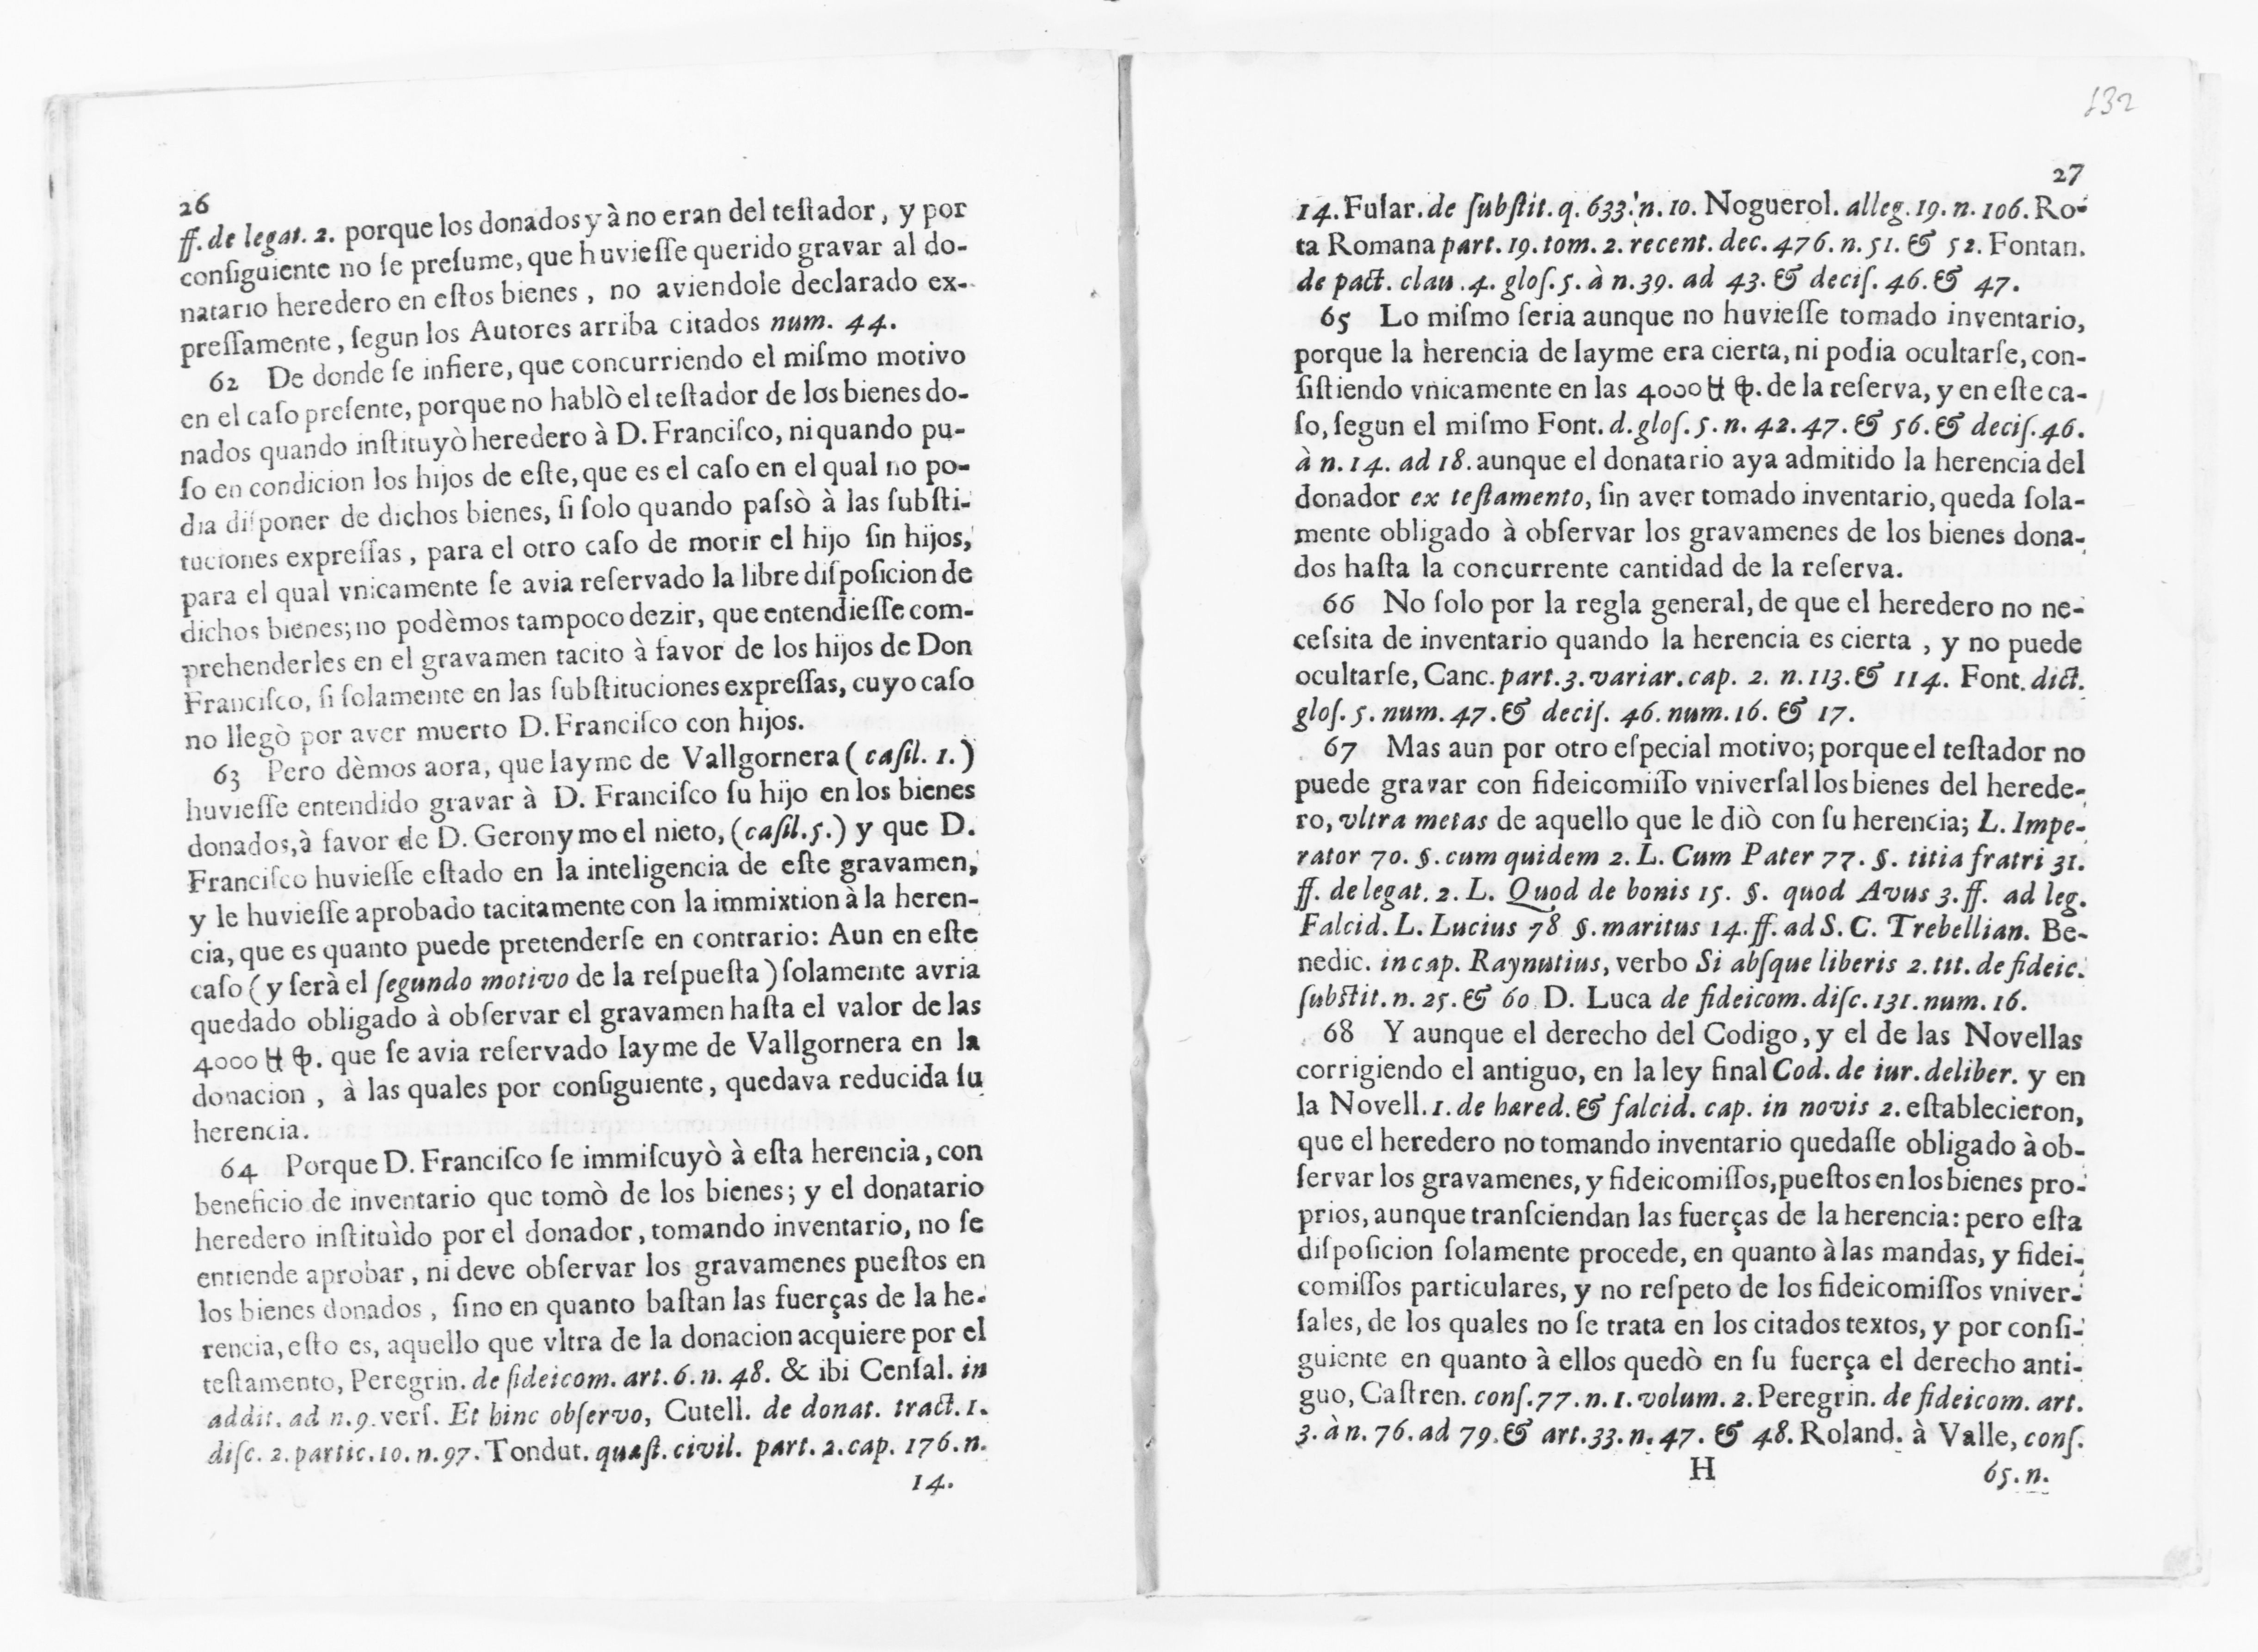 26
ff. de legat. 2. porque los donados y à no eran del teſtador, y por
conſiguiente no ſe preſume, que huvieſſe querido gravar al do-
natario heredero en eſtos bienes, no aviendole declarado ex-
preſſamente, ſegun los Autores arriba citados num. 44.
62 De donde ſe infiere, que concurriendo el miſmo motivo
en el caſo preſente, porque no hablò el teſtador de los bienes do-
nados quando inſtituyò heredero à D. Franciſco, ni quando pu-
ſo en condicion los hijos de eſte, que es el caſo en el qual no po-
dia diſponer de dichos bienes, ſi ſolo quando paſsò à las ſubſti-
tuciones expreſſas, para el otro caſo de morir el hijo ſin hijos,
para el qual vnicamente ſe avia reſervado la libre diſpoſicion de
dichos bienes; no podèmos tampoco dezir, que entendieſſe com-
prehenderles en el gravamen tacito à favor de los hijos de Don
Franciſco, ſi ſolamente en las ſubſtituciones expreſſas, cuyo caſo
no llegò por aver muerto D. Franciſco con hijos.
63 Pero dèmos aora, que Iayme de Vallgornera (caſil. 1.)
huvieſſe entendido gravar à D. Franciſco ſu hijo en los bienes
donados, à favor de D. Geronymo el nieto, (caſil. 5.) y que D.
Franciſco huvieſſe eſtado en la inteligencia de eſte gravamen,
y le huvieſſe aprobado tacitamente con la immixtion à la heren-
cia, que es quanto puede pretenderſe en contrario: Aun en eſte
caſo (y ſerà el ſegundo motivo de la reſpueſta) ſolamente avria
quedado obligado à obſervar el gravamen haſta el valor de las
4000 que ſe avia reſervado Iayme de Vallgornera en la
donacion, à las quales por conſiguiente, quedava reducida ſu
herencia.
64 Porque D. Franciſco ſe immiſcuyò à eſta herencia, con
beneficio de inventario que tomò de los bienes; y el donatario
heredero inſtituìdo por el donador, tomando inventario, no ſe
entiende aprobar, ni deve obſervar los gravamenes pueſtos en
los bienes donados, ſino en quanto baſtan las fuerças de la he-
rencia, eſto es, aquello que vltra de la donacion acquiere por el
teſtamento, Peregrin. de fideicom. art. 6. n. 48. & ibi Cenſal. in
addit. ad n. 9. verſ. Et hinc obſervo, Cutell. de donat. tract. 1.
diſc. 2. partic. 10. n. 97. Tondut. quæſt. civil. part. 2. cap. 176. n.
14.
132
27
14. Fuſar. de ſubſtit. q. 633. n. 10. Noguerol. alleg. 19. n. 106. Ro-
ta Romana part. 19. tom. 2. recent. dec. 476. n. 51. & 52. Fontan.
de pact. clau. 4. gloſ. 5. à n. 39. ad 43. & deciſ. 46. & 47.
65 Lo miſmo ſeria aunque no huvieſſe tomado inventario,
porque la herencia de Iayme era cierta, ni podia ocultarſe, con-
ſiſtiendo vnicamente en las 4000 de la reſerva, y en eſte ca-
ſo, ſegun el miſmo Font. d. gloſ. 5. n. 42. 47. & 56. & deciſ. 46.
à n. 14. ad 18. aunque el donatario aya admitido la herencia del
donador ex teſtamento, ſin aver tomado inventario, queda ſola-
mente obligado à obſervar los gravamenes de los bienes dona-
dos haſta la concurrente cantidad de la reſerva.
66 No ſolo por la regla general, de que el heredero no ne-
ceſsita de inventario quando la herencia es cierta, y no puede
ocultarſe, Canc. part. 3. variar. cap. 2. n. 113. & 114. Font. dict.
gloſ. 5. num. 47. & deciſ. 46. num. 16. & 17.
67 Mas aun por otro eſpecial motivo; porque el teſtador no
puede gravar con fideicomiſſo vniverſal los bienes del herede-
ro, vltra metas de aquello que le diò con ſu herencia; L. Impe-
rator 70. §. cum quidem 2. L. Cum Pater 77. §. titia fratri 31.
ff. de legat. 2. L. Quod de bonis 15. §. quod Avus 3. ff. ad leg.
Falcid. L. Lucius 78 §. maritus 14. ff. ad S. C. Trebellian. Be-
nedic. in cap. Raynutius, verbo Si abſque liberis 2. tit. de fideic.
ſubſtit. n. 25. & 60 D. Luca de fideicom. diſc. 131. num. 16.
68 Y aunque el derecho del Codigo, y el de las Novellas
corrigiendo el antiguo, en la ley final Cod. de iur. deliber. y en
la Novell. 1. de hæred. & falcid. cap. in novis 2. eſtablecieron,
que el heredero no tomando inventario quedaſſe obligado à ob-
ſervar los gravamenes, y fideicomiſſos, pueſtos en los bienes pro-
prios, aunque tranſciendan las fuerças de la herencia: pero eſta
diſpoſicion ſolamente procede, en quanto à las mandas, y fidei-
comiſſos particulares, y no reſpeto de los fideicomiſſos vniver-
ſales, de los quales no ſe trata en los citados textos, y por conſi-
guiente en quanto à ellos quedò en ſu fuerça el derecho anti-
guo, Caſtren. conſ. 77. n. 1. volum. 2. Peregrin. de fideicom. art.
3. à n. 76. ad 79. & art. 33. n. 47. & 48. Roland. à Valle, conſ.
H 65. n.